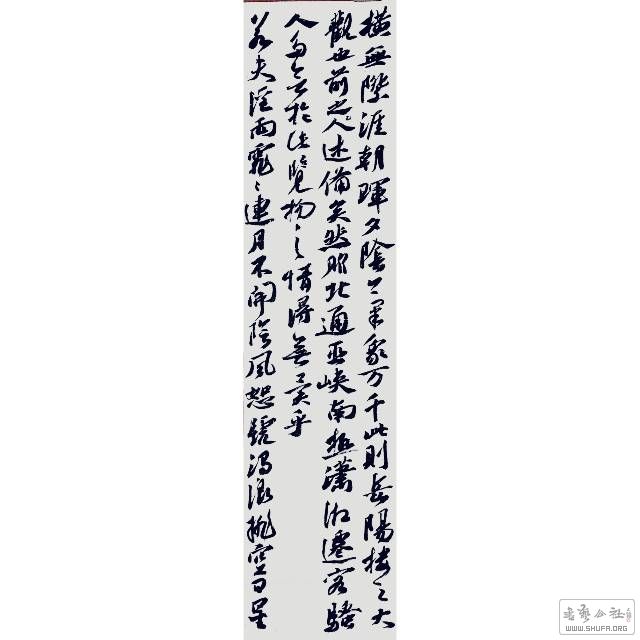 橫無際涯朝暉夕陰氣象万千此則岳陽樓之大
觀也前之人述備矣然則北通巫峽南極瀟湘遷客騷
人多会於此覽物之情得無異乎
若夫淫雨霏〻連月不開陰風怒號濁浪排空日星
书艺公社
WWW.SHUFA.ORG